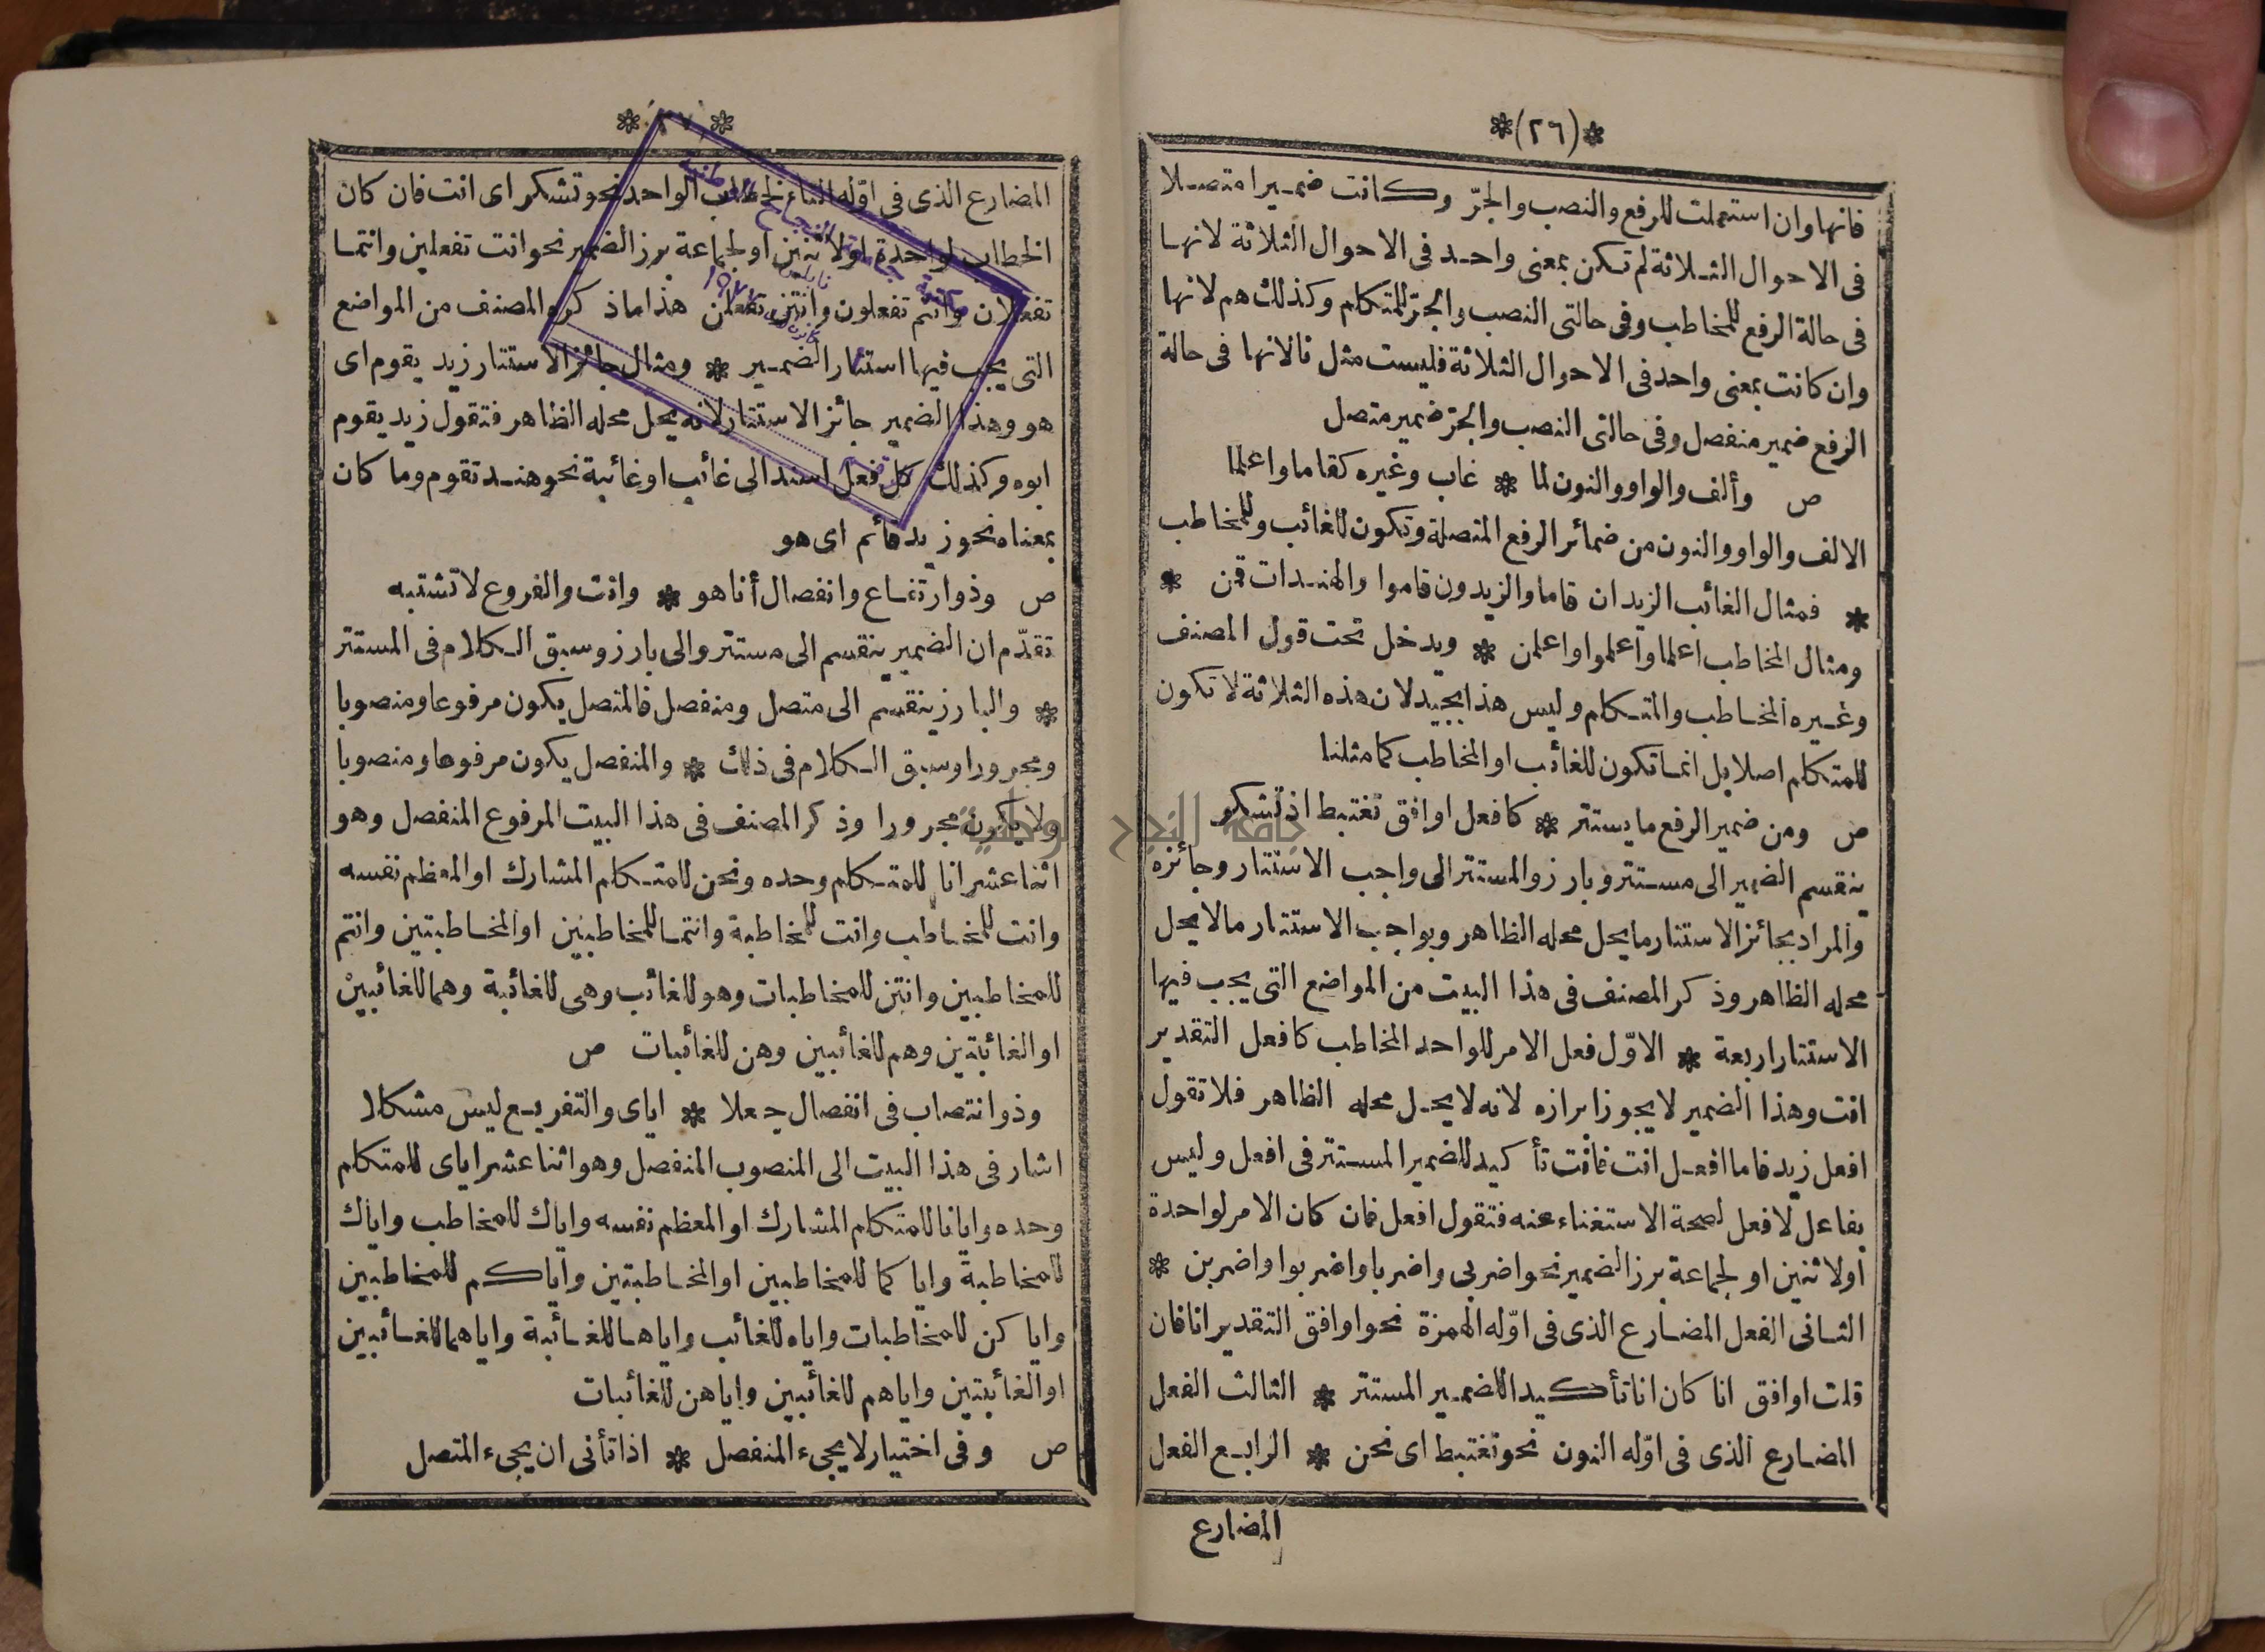 *(٢٦)*
فانها وان استعملت للرفع والنصب والجرّ وكانت ضميرا متصلا
فى الاحوال الثلاثة لم تكن بمعنى واحد فى الاحوال الثلاثة لانها
فى حالة الرفع للمخاطب وفى حالتى النصب والجرّ للمتكلم وكذلك هم لانها
وان كانت بمعنى واحد فى الاحوال الثلاثة فليست مثل نا لانها فى حالة
الرفع ضمير منفصل وفى حالتى النصب والجرّ ضمير متصل
ص وألف والواو والنون لما * غاب وغيره كقاما واعلما
الالف والواو والنون من ضمائر الرفع المتصلة وتكون للغائب وللمخاطب
* فمثال الغائب الزيدان قاما والزيدون قاموا والهندات قمن *
ومثال المخاطب اعلما واعلموا واعلمن * ويدخل تحت قول المصنف
وغيره المخاطب والمتكلم وليس هذا بجيد لان هذه الثلاثة لا تكون
للمتكلم اصلا بل انما تكون للغائب او المخاطب كما مثلنا
ص ومن ضمير الرفع ما يستتر * كافعل اوافق نغتبط اذ تشكر
ينقسم الضمير الى مستتر وبارز والمستتر الى واجب الاستتار وجائزه
والمراد بجائز الاستتار ما يحل محله الظاهر وبواجب الاستتار ما لا يحل
محله الظاهر وذكر المصنف فى هذا البيت من المواضع التى يجب فيها
الاستتار اربعة * الاوّل فعل الامر للواحد المخاطب كافعل التقدير
انت وهذا الضمير لا يجوز ابرازه لانه لا يحل محله الظاهر فلا تقول
افعل زيد فاما افعل انت فانت تأكيد للضمير المستتر فى افعل وليس
بفاعل لافعل لصحة الاستغناء عنه فتقول افعل فان كان الامر لواحدة
اولاثنين او لجماعة برز الضمير نحو اضربى واضربا واضربوا واضربن *
الثانى الفعل المضارع الذى فى اوّله الهمزة نحو اوافق التقدير انا فان
قلت اوافق انا كان انا تأكيدا للضمير المستتر * الثالث الفعل
المضارع الذى فى اوّله النون نحو نغتبط اى نحن * الرابع الفعل
المضارع
المضارع الذى فى اوّله التاء لخطاب الواحد نحو تشكر اى انت فان كان
الخطاب لواحدة اولاثنين او لجماعة برز الضمير نحو انت تفعلين وانتما
تفعلان وانتم تفعلون وانتن تفعلن هذا ما ذكره المصنف من المواضع
التى يجب فيها استتار الضمير * ومثال جائز الاستتار زيد يقوم اى
هو وهذا الضمير جائز الاستتار لانه يحل محله الظاهر فتقول زيد يقوم
ابوه وكذلك كل فعل اسند الى غائب او غائبة نحو هند تقوم وما كان
بمعناه نحو زيد قائم اى هو
ص وذو ارتفاع وانفصال أنا هو * وانت والفروع لا تشتبه
تقدّم ان الضمير ينقسم الى مستتر والى بارز وسبق الكلام فى المستتر
* والبارز ينقسم الى متصل ومنفصل فالمتصل يكون مرفوعا ومنصوبا
ومجرورا وسبق الكلام فى ذلك * والمنفصل يكون مرفوعا ومنصوبا
ولا يكون مجرورا وذكر المصنف فى هذا البيت المرفوع المنفصل وهو
اثنا عشر انا للمتكلم وحده ونحن للمتكلم المشارك او المعظم نفسه
وانت للمخاطب وانت للمخاطبة وانتما للمخاطبين او المخاطبتين وانتم
للمخاطبين وانتن للمخاطبات وهو للغائب وهى للغائبة وهما للغائبين
او الغائبتين وهم للغائبين وهن للغائبات ص
وذو انتصاب فى انفصال جعلا * اياى والتفريع ليس مشكلا
اشار فى هذا البيت الى المنصوب المنفصل وهو اثنا عشر اياى للمتكلم
وحده وايانا للمتكلم المشارك او المعظم نفسه واياك للمخاطب واياك
للمخاطبة واياكما للمخاطبين او المخاطبتين واياكم للمخاطبين
واياكن للمخاطبات واياه للغائب واياها للغائبة واياهما للغائبين
او الغائبتين واياهم للغائبين واياهن للغائبات
ص وفى اختيار لا يجىء المنفصل * اذا تأتى ان يجىء المتصل
جامعة النجاح الوطنية